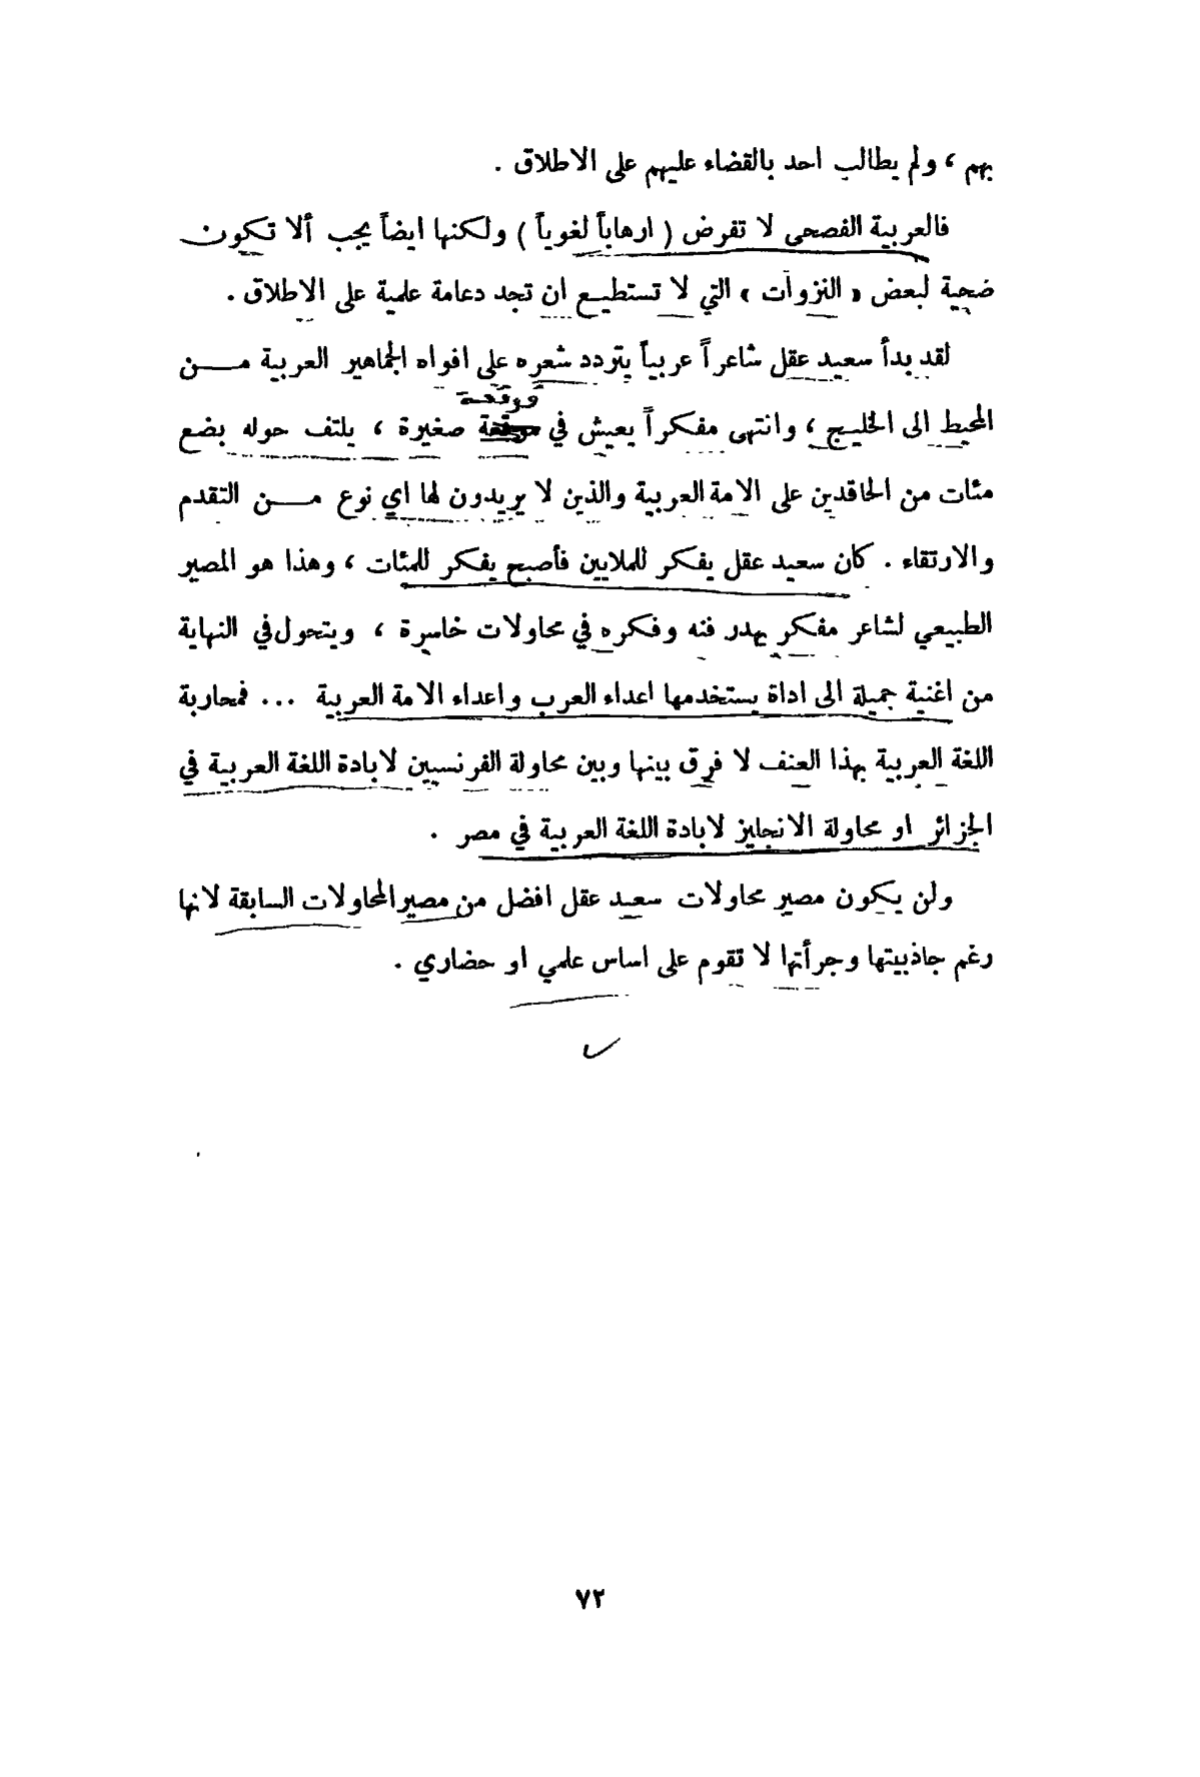 بهم ، ولم يطالب احد بالقضاء عليهم على الاطلاق .
فالعربية الفصحى لا تفرض ( ارهاباً لغوياً ) ولكنها ايضاً يجب ألا تكون
ضحية لبعض « النزوات » التي لا تستطيع ان تجد دعامة علمية على الاطلاق .
لقد بدأ سعيد عقل شاعراً عربياً يتردد شعره على افواه الجماهير العربية من
قوقعة
المحيط الى الخليج ، وانتهى مفكراً يعيش في صغيرة ، يلتف حوله بضع
مئات من الحاقدين على الامة العربية والذين لا يريدون لها اي نوع من التقدم
والارتقاء . كان سعيد عقل يفكر للملايين فأصبح يفكر للمئات ، وهذا هو المصير
الطبيعي لشاعر مفكر يهدر فنه وفكره في محاولات خاسرة ، ويتحول في النهاية
من اغنية جميلة الى اداة يستخدمها اعداء العرب واعداء الامة العربية ... فمحاربة
اللغة العربية بهذا العنف لا فرق بينها وبين محاولة الفرنسيين لابادة اللغة العربية في
الجزائر او محاولة الانجليز لابادة اللغة العربية في مصر .
ولن يكون مصير محاولات سعيد عقل افضل من مصير المحاولات السابقة لانها
رغم جاذبيتها وجرأتها لا تقوم على اساس علمي او حضاري .
٧٢